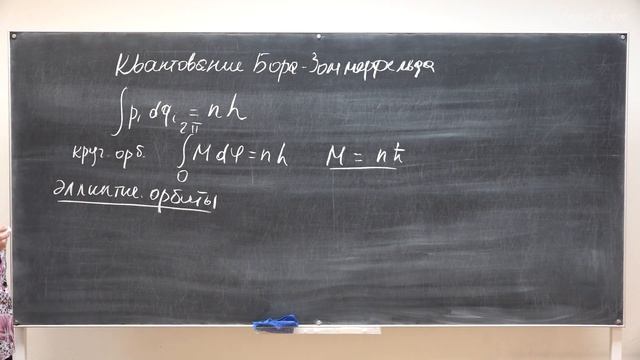 Квантование Бора-Зоммерфельда
∫ pᵢ dqᵢ = nh
круг. орб. ∫₀^2π M dφ = nh M = nħ
эллиптич. орбиты